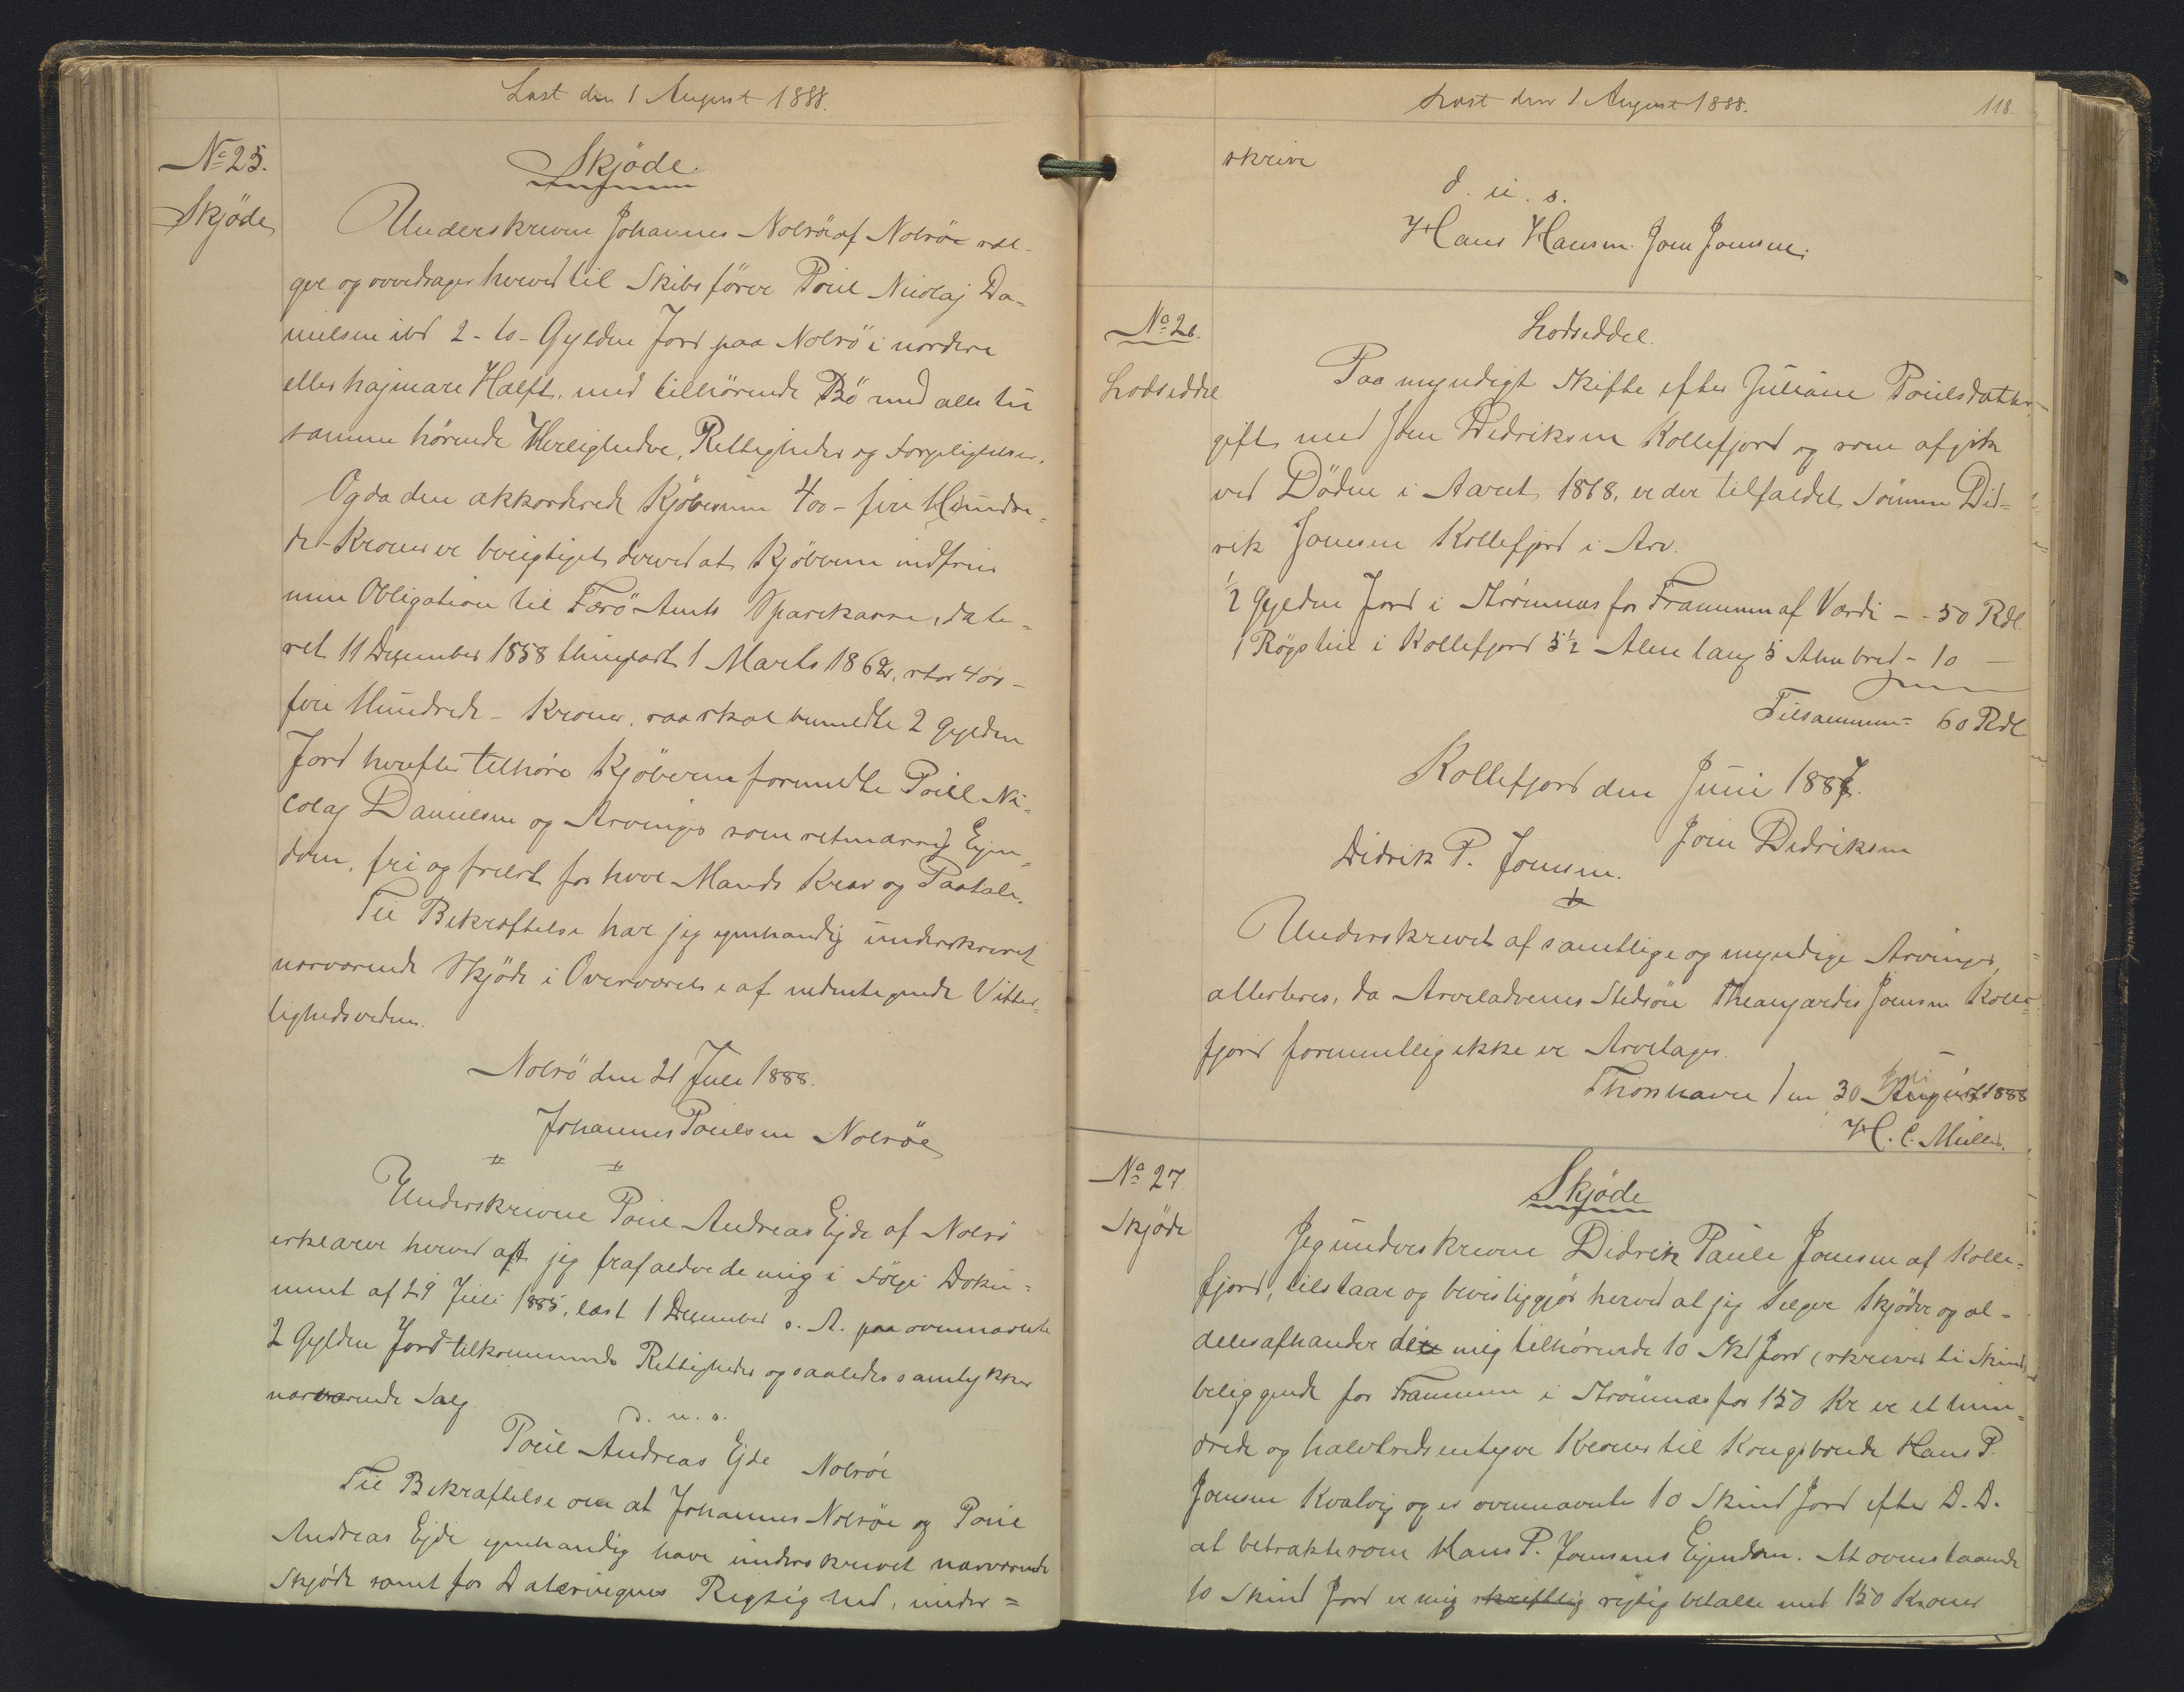 Læst den 1 August 1888.
No 25.
Skjøde
Skjøde.
Underskrevne Johannes Nolsöe af Nolsöe sæl-
ger og overdrager herved til Skibsförer Poul Nicolaj Da-
nielsen ibd 2 - to - Gylden Jord paa Nolsö i nordere
eller hajmare Halft, med tilhörende Bö med alle til
samme hörende Herligheder, Rettigheder og Forpligtelser.
Og da den akkorderede Kjöbesum 400 - fire Hundre-
de - Kroner er berigtiget derved at Kjöberen indfrier
min Obligation til Færö Amts Sparekasse, date-
ret 11 December 1858 thinglæst 1 Marts 1862, stor 400 -
fire Hundrede - Kroner, saa skal bemeldte 2 Gylden
Jord herefter tilhöre Kjöberen formeldte Poul Ni-
colaj Danielsen og Arvinger som retmæssig Ejen-
dom, fri og frelst for hver Mands Krav og Paatale.
Til Bekræftelse har jeg egenhændig underskrevet
nærværende Skjöde i Overværelse af nedentegnede Vitter-
lighedsvidner.
Nolsö den 21 Juli 1888.
Johannes Poulsen Nolsöe
Underskrevne Poul Andreas Ejde af Nolsö
erklærer herved at jeg frafalder de mig i Fölge Doku-
ment af 29 Juli 1885, læst 1 December s. A. paa ovennævnte
2 Gylden Jord tilkommende Rettigheder og saaledes samtykker
nærværende Salg.
d. u. s.
Poul Andreas Ejde Nolsöe
Til Bekræftelse om at Johannes Nolsöe og Poul
Andreas Ejde egenhændig have underskrevet nærværende
Skjöde samt for Dateringens Rigtighed, under=
Læst den 1 August 1888.
118.
skrive
d. u. s.
Hans Hansen. Joen Joensen.
No 26.
Lodseddel
Lodseddel.
Paa myndigt Skifte efter Juliane Poulsdatter,
gift med Joen Didriksen Kollefjord og som afgik
ved Döden i Aaret 1868, er der tilfaldet Sönnen Did-
rik Joensen Kollefjord i Arv.
1/2 Gylden Jord i Strömnæs for Frammen af Værdi - - 50 Rdl.
1 Røgstue i Kollefjord 5 1/2 Alen lang 5 Alen bred - 10 —
Tilsammen = 60 Rdl.
Kollefjord den Juni 1887.
Joen Didriksen
Didrik P. Joensen.
Underskrevet af samtlige og myndige Arvinger,
attesteres, da Arveladerens Stedsön Joensen Kolle-
fjord formentlig ikke er Arvetager.
Thorshavn den 30 Juli August 1888
H. C. Müller.
No 27
Skjöde
Skjøde
Jeg underskrevne Didrik Paule Joensen af Kolle-
fjord, tilstaar og bevisliggjör herved at jeg sælger skjöder og al-
deles afhænder de mig tilhörende 10 Skd Jord (skriver ti Skind)
beliggende for Frammen i Strömnæs for 150 Kr er et hun-
drede og halvtredsentyve Kroner til Kongsbonde Hans P.
Joensen Kvalvig og er ovennævnte 10 Skind Jord efter D. D.
at betrakte som Hans P. Joensens Ejendom. At ovenstaaende
10 Skind Jord er mig skriftlig rigtig betalte med 150 Kroner